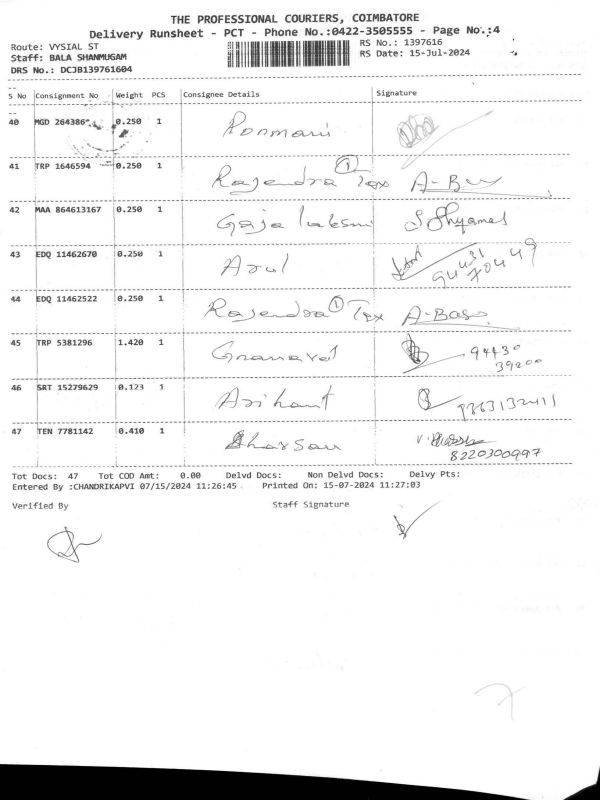 THE PROFESSIONAL COURIERS, COIMBATORE
Delivery Runsheet - PCT - Phone No.:0422-3505555 - Page No.:4
Route: VYSIAL ST
RS No.: 1397616
Staff: BALA SHANMUGAM
RS Date: 15-Jul-2024
DRS No.: DCJB139761604
S No Consignment No Weight PCS Consignee Details Signature
40 MGD 264386 0.250 1 Ponmani
41 TRP 1646594 0.250 1 Rajendra Tex 1
42 MAA 864613167 0.250 1 Gaja lakshmi
43 EDQ 11462670 0.250 1 Arul 94431 70449
44 EDQ 11462522 0.250 1 Rajendra 1 Tex A-Bas
45 TRP 5381296 1.420 1 Gnanavel 94430 39200
46 SRT 15279629 0.123 1 Arihant
47 TEN 7781142 0.410 1 8220300997
Tot Docs: 47 Tot COD Amt: 0.00 Delvd Docs: Non Delvd Docs: Delvy Pts:
Entered By :CHANDRIKAPVI 07/15/2024 11:26:45 Printed On: 15-07-2024 11:27:03
Verified By Staff Signature